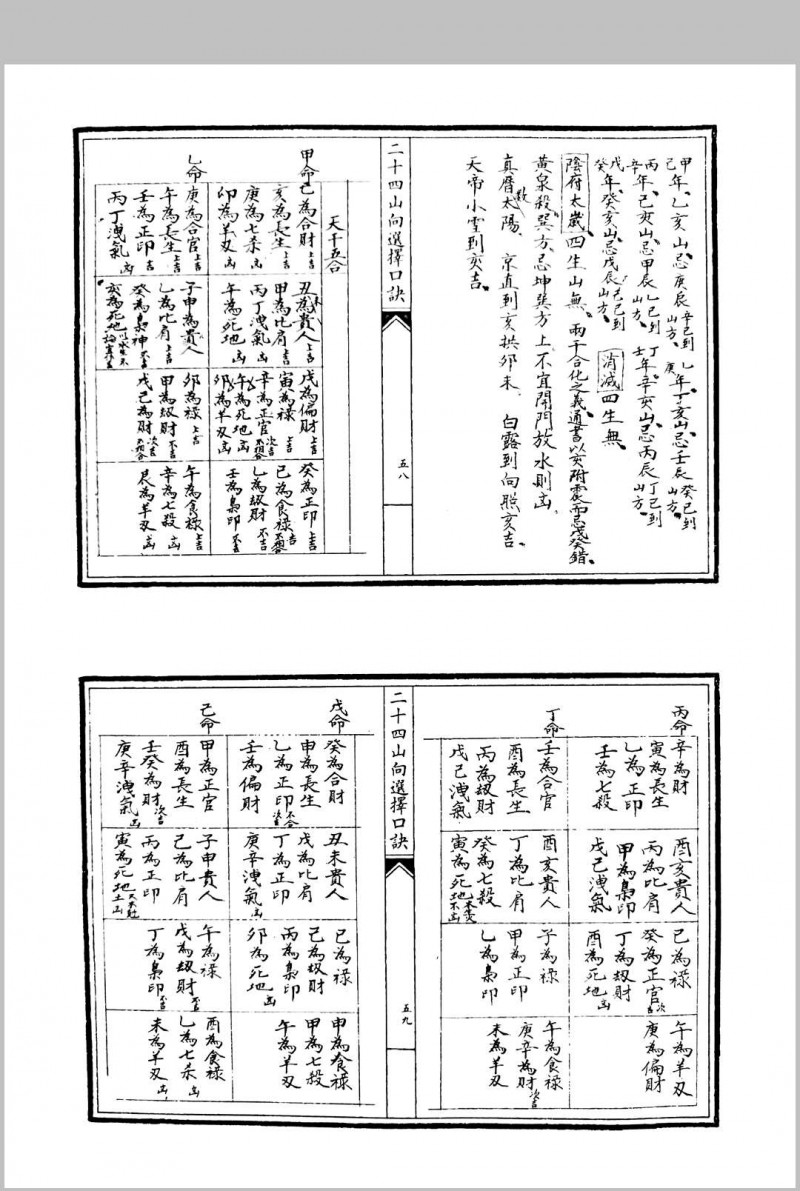 甲年、乙亥山、忌庚辰辛巳到山方、乙年、丁亥山、忌壬辰癸巳到山方、
丙辛年、己亥山、忌甲辰乙巳到山方、丁壬年、辛亥山、忌丙辰丁巳到山方、
戊癸年、癸亥山、忌戊辰己巳到山方、消滅四生無、
陰府太歲四生山無、兩干合化之義、通書以亥附震而忌戊癸錯、
黃泉殺巽方忌坤巽方上不宜開門放水則凶、
真曆數太陽、京直到亥拱卯未、白露到向照亥吉、
天帝小雪到亥吉、
二十四山向選擇口訣
五八
天干五合
甲命
己為合財上吉
亥為長生上吉
庚為七杀上吉
卯為羊刃凶
丑未為貴人上吉
甲為比肩上吉
丙丁洩氣凶
午為死地凶
戊為偏財上吉
寅為祿上吉
辛為正官次吉
午為死地凶
卯為羊刃凶
癸為正印上吉
己為食祿吉
乙為刼財不吉
壬為梟印不吉
乙命
庚為合官上吉
午為長生上吉
壬為正印上吉
丙丁洩氣凶
子申為貴人
乙為比肩上吉
癸為梟神不吉
亥為死地
卯為祿上吉
甲為刼財不吉
戊己為財次吉
午為食祿上吉
辛為七殺凶
辰為羊刃凶
丙命
辛為財
寅為長生
乙為正印
壬為七殺
酉亥貴人
丙為比肩
甲為梟印
戊己洩氣
巳為祿
癸為正官次吉
丁為刼財
酉為死地凶
午為羊刃
庚為偏財
丁命
壬為合官
酉為長生
丙為刼財
戊己洩氣
酉亥貴人
丁為比肩
癸為七殺
寅為死地
子為祿
甲為正印
乙為梟印
午為食祿
庚辛為財次吉
未為羊刃
二十四山向選擇口訣
五九
戊命
癸為合財
申為長生
乙為正印不合次吉
壬為偏財
丑未貴人
戊為比肩
丁為正印
庚辛洩氣凶
巳為祿
己為刼財
丙為梟印
卯為死地凶
申為食祿
甲為七殺
午為羊刃
己命
甲為正官
酉為長生
壬癸為財次吉
庚辛洩氣凶
子申貴人
己為比肩
丙為正印
寅為死地
午為祿
戊為刼財不吉
丁為梟印不吉
酉為食祿
乙為七杀凶
未為羊刃凶